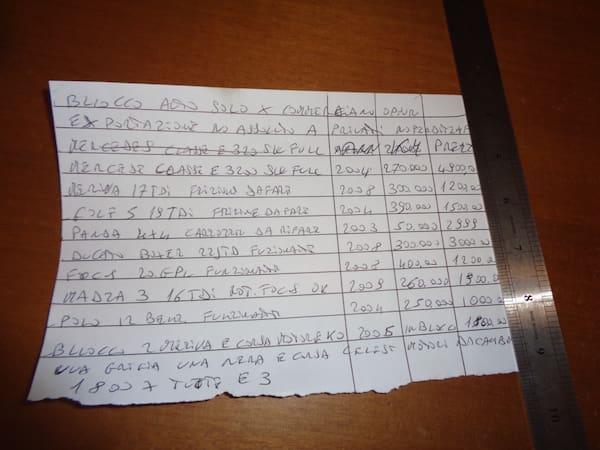 BLIOCCO AUTO SOLO X COMMERCIANO OPPUR
EXPORTAZIONE NO ASSOLUTO A PRIVATI NO PERDITEMP
MERCEDES CLASSE E 320 SW FULL ANNO KM PREZZ
MERCEDE CLASSE E 320 SW FULL 2004 270.000 4900.00
MERIVA 17 TDI FRIZIONE DAFARE 2008 300.000 1200.00
GOLF 5 19 TDI FRIZIONE DAFARE 2004 390.000 1500.00
PANDA 4X4 CARROZZERI DA RIPARE 2003 50.000 2999
DUCATO BOXER 22 JTD FUNZIONANTE 2008 300.000 3000.00
20 GPL FUNZIONANTE 2007 400.000 1200.00
MADZA 3 16 TDI MOT. FOCUS OK 2009 260.000 1900.00
POLO 12 BENZ. FUNZIONANTE 2004 250.000 1000.00
BLIOCCO 2 MERIVA E CORSA MOTORE KO 2005 IN BLOCCO 1800.00
UNA GRIGIA UNA NERA E CORSA CELEST MOTORI DACAMB
1800 X TUTTE E 3
8
9
10